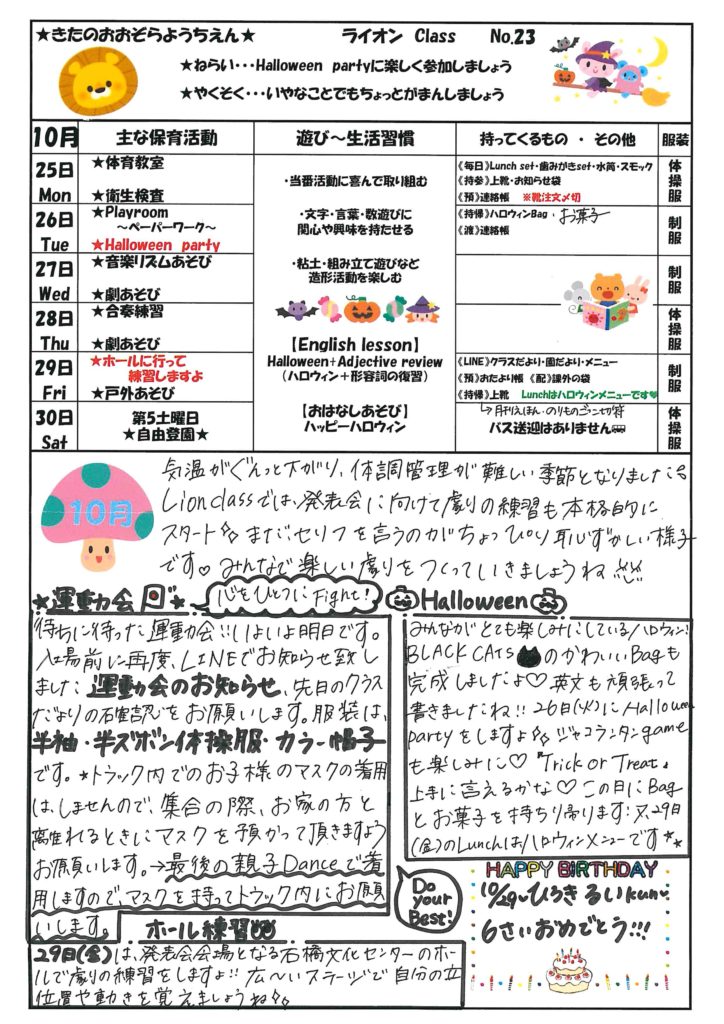 ★きたのおおぞらようちえん★ ライオン Class No.23
★ねらい･･･Halloween partyに楽しく参加しましょう
★やくそく･･･いやなことでもちょっとがまんしましょう
10月 主な保育活動 遊び～生活習慣 持ってくるもの ・ その他 服装
25日 Mon
★体育教室
★衛生検査
26日 Tue
★Playroom
～ペーパーワーク～
★Halloween party
27日 Wed
★音楽リズムあそび
★劇あそび
28日 Thu
★合奏練習
★劇あそび
29日 Fri
★ホールに行って
練習しますよ
★戸外あそび
30日 Sat
第5土曜日
★自由登園★
・当番活動に喜んで取り組む
・文字・言葉・数遊びに
関心や興味を持たせる
・粘土・組み立て遊びなど
造形活動を楽しむ
【English lesson】
Halloween+Adjective review
(ハロウィン＋形容詞の復習)
【おはなしあそび】
ハッピーハロウィン
《毎日》Lunch set・歯みがきset・水筒・スモック
《持参》上靴・お知らせ袋
《預》連絡帳 ※靴注文〆切
《持帰》ハロウィンBag・お菓子
《渡》連絡帳
《LINE》クラスだより・園だより・メニュー
《預》おたより帳 《配》課外の袋
《持帰》上靴 Lunchはハロウィンメニューです♥
バス送迎はありません
体操服
制服
制服
体操服
制服
体操服
10月
気温がぐんっと下がり、体調管理が難しい季節となりました。
Lion classでは、発表会に向けて劇の練習も本格的に
スタート♪ まだセリフを言うのがちょっぴり恥ずかしい様子
です♡ みんなで楽しい劇をつくっていきましょうね
★運動会★ 心をひとつにFight!
待ちに待った運動会!!いよいよ明日です。
入場前に再度、LINEでお知らせ致し
ました運動会のお知らせ、先日のクラス
だよりの確認をお願いします。服装は、
半袖・半ズボン体操服・カラー帽子
です。★トラック内でのお子様のマスクの着用
は、しませんので、集合の際、お家の方と
離れるときにマスクを預かって頂きますよう
お願いします。→最後の親子Danceで着
用しますので、マスクを持ってトラック内にお願
いします。
Halloween
みんながとても楽しみにしているハロウィン!
BLACK CATS のかわいいBagも
完成しましたよ♡ 英文も頑張って
書きましたね!! 26日(火)にHalloween
partyをしますよ♪ ジャコランタンgame
も楽しみに♡ "Trick or Treat"
上手に言えるかな♡ この日にBag
とお菓子を持ち帰ります。又、29日
(金)のLunchはハロウィンメニューです★★
Do your Best!
ホール練習
29日(金)は、発表会会場となる石橋文化センターのホー
ルで劇の練習をしますよ!! 広～いステージで自分の立
位置や動きを覚えましょうね♪
HAPPY BIRTHDAY
10/29～ひろき るいkun
6さいおめでとう!!!